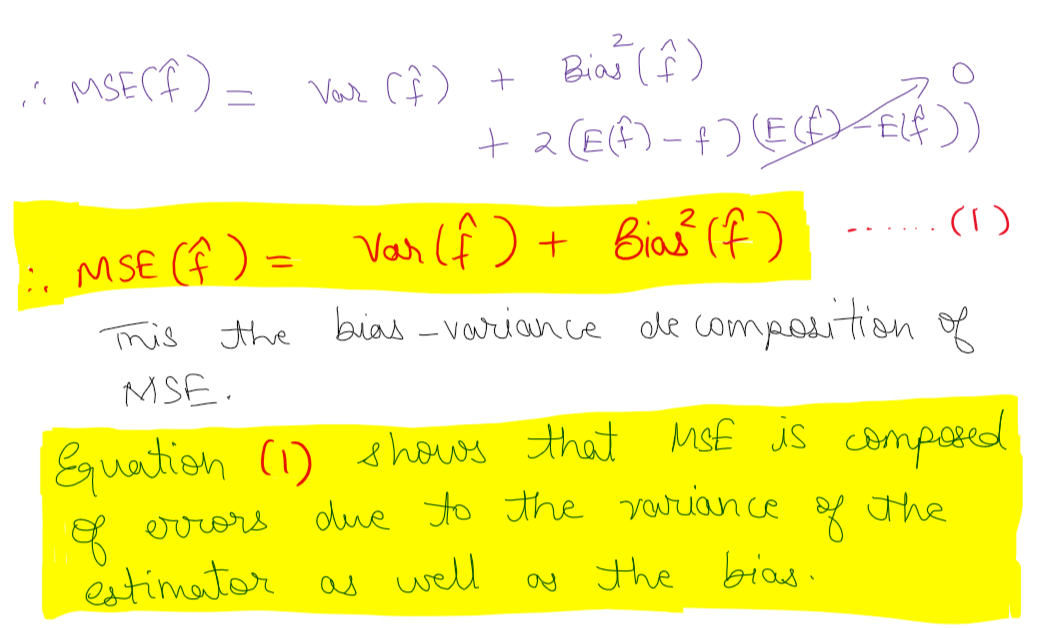 ∴ MSE(f̂) = Var (f̂) + Bias²(f̂)
+ 2(E(f̂) - f)(E(f̂) - E(f̂)) → 0
∴ MSE(f̂) = Var(f̂) + Bias²(f̂) ...... (1)
This the bias-variance decomposition of
MSE.
Equation (1) shows that MSE is composed
of errors due to the variance of the
estimator as well as the bias.